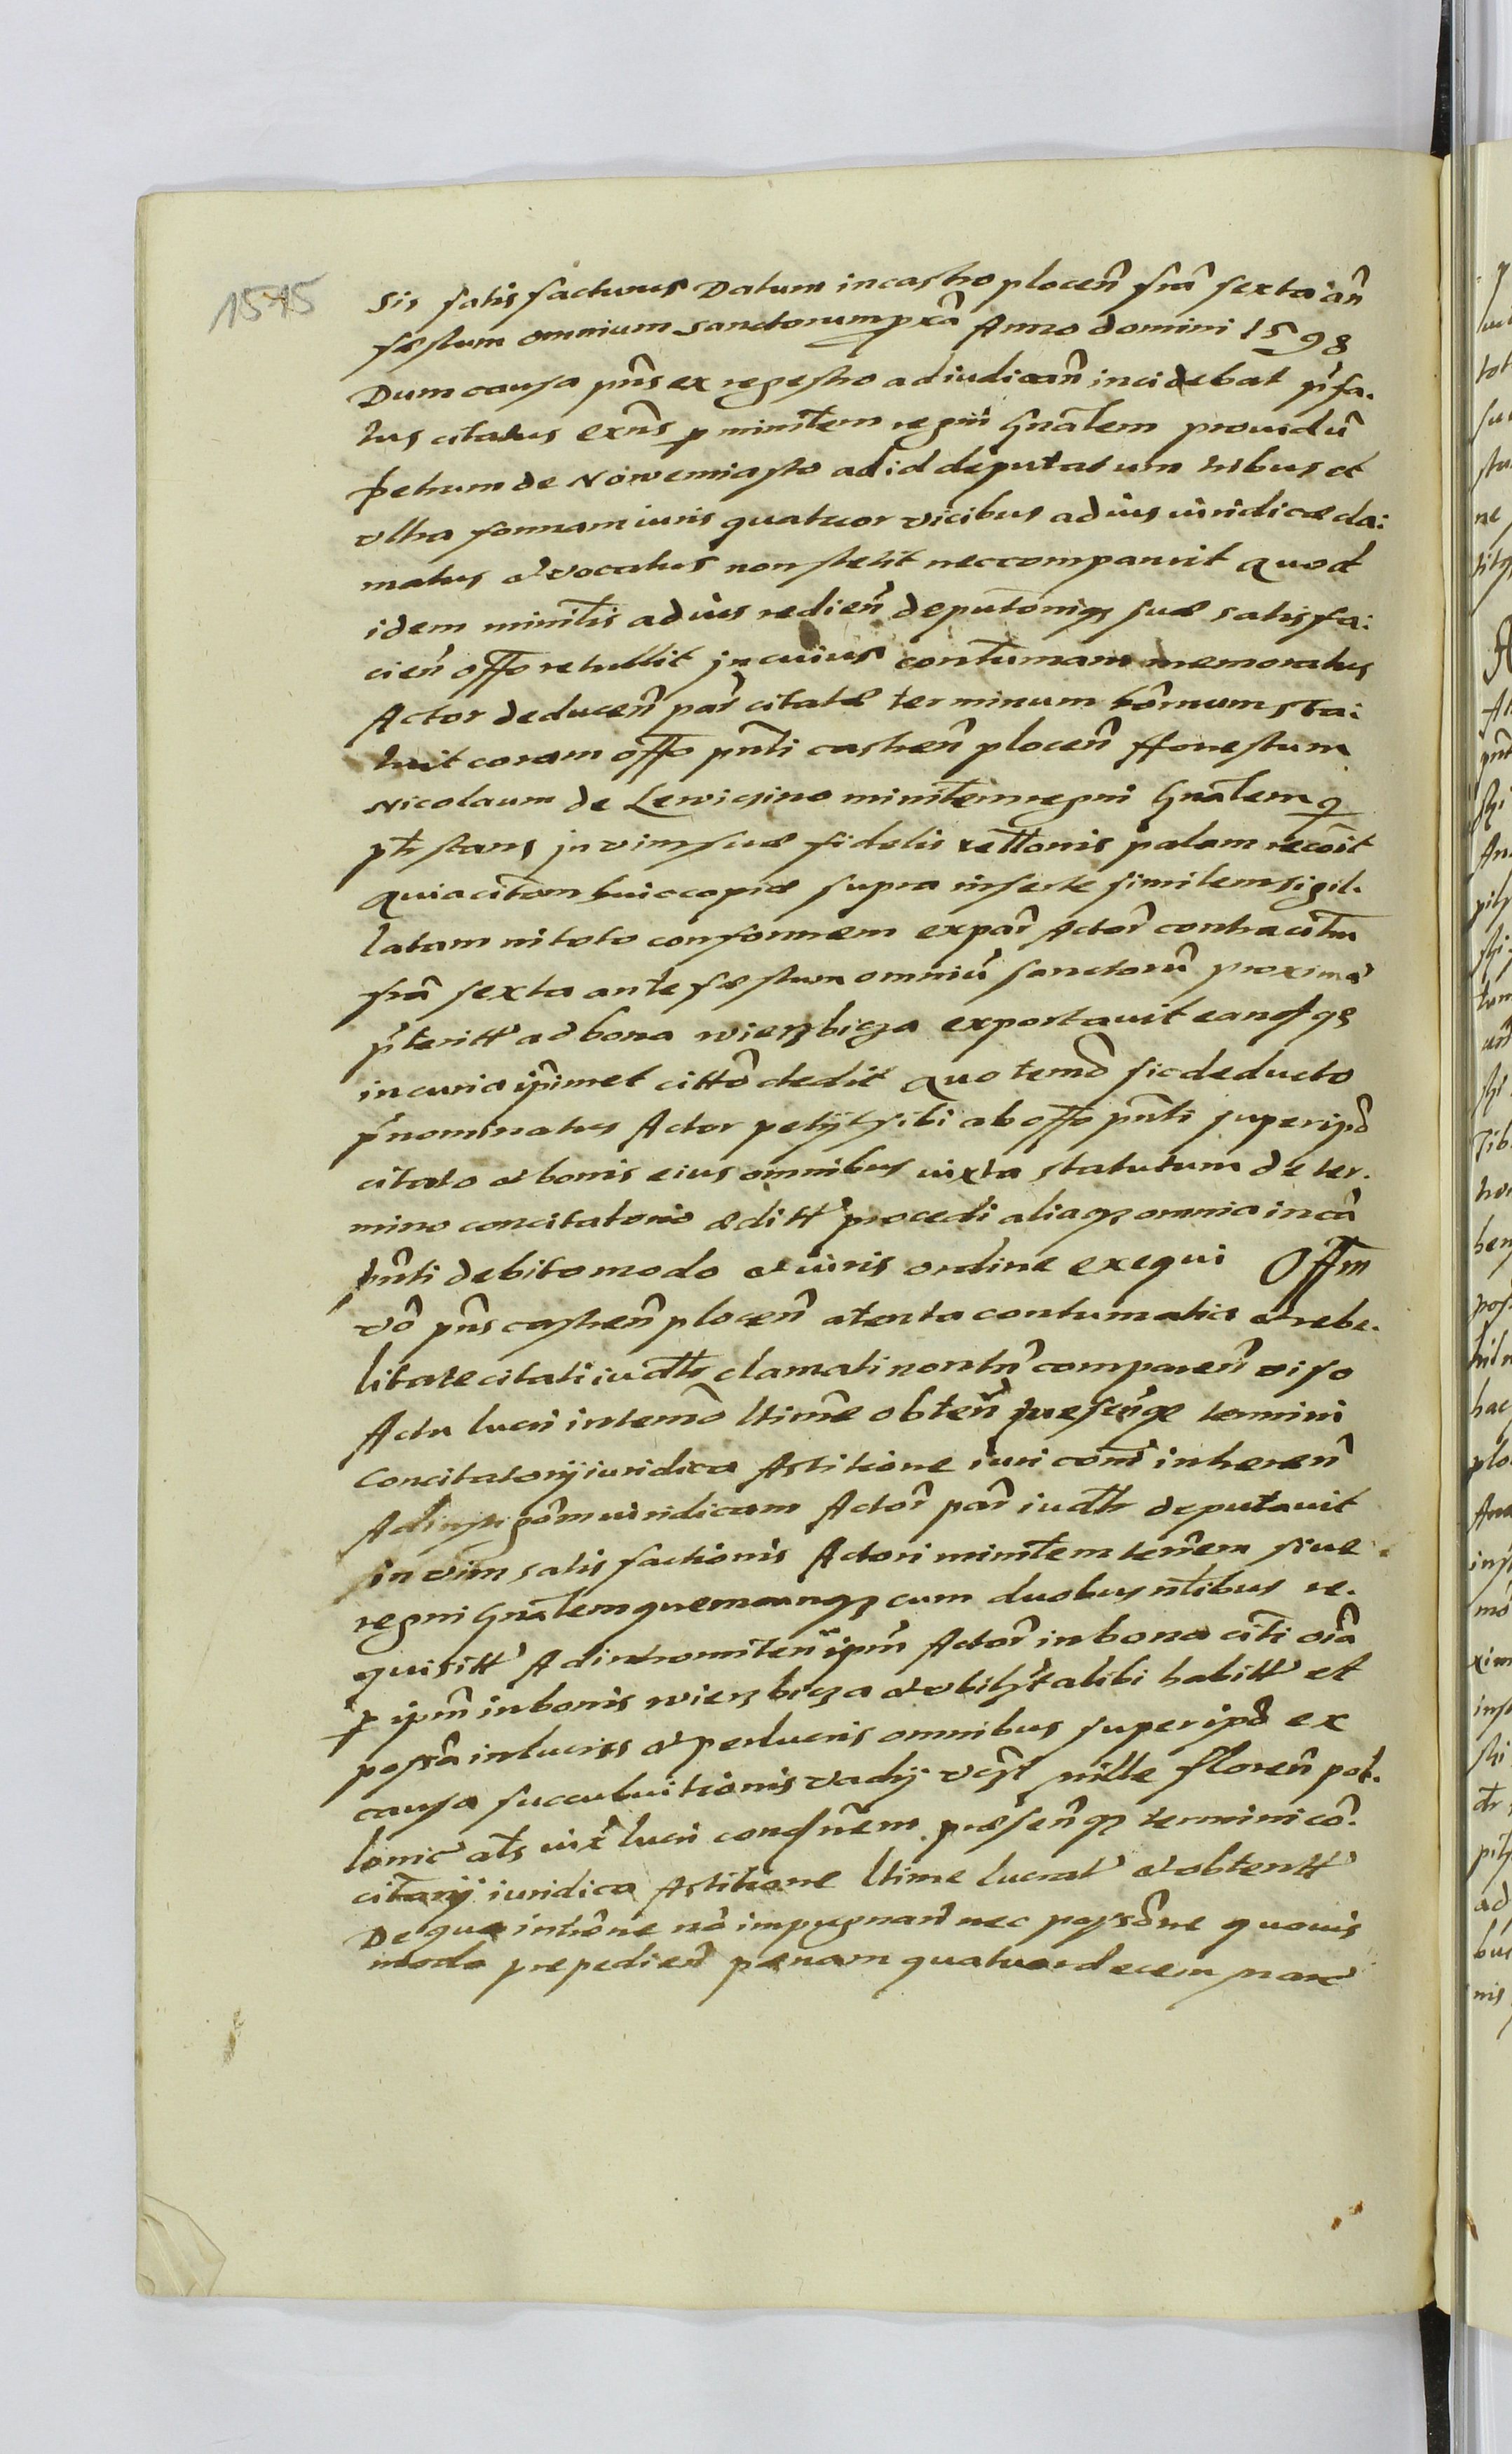 1545
Sis satisfacturus Datum in castro plocen̄ fr̄ia sexta an̄
festum omnium sanctorum px̄a Anno domini 1598
Dum causa pn̄s ex regestro ad iudican̄ incidebat p̄fa.
tus citatus exn̄s p ministem regni gn̄alem prouidū
Petrum de Nowemiasto ad id deputatum tribus et
vltra formam iuris quatuor vicibus ad ius iuridice cla:
matus et vocatus non stetit nec comparuit Quod
idem minist̄is ad ius redien̄ deputōniqȝ suæ satisfa:
cien̄ offo retullit in cuius contumam memoratus
Actor deducen̄ par̄ citatæ terminum hōrnum sta:
tuit coram offo pn̄ti castren̄ plocen̄ Honestum
Nicolaum de Lewiczino ministem regni gn̄alem q
pt̄ stans in vim suæ fidelis rettonis palam recōit
Quia citōm huic copiæ supra inserte similem sigil.
latam in toto conformem ex par̄ Actor̄ contra citm̄
fr̄ia sexta ante festum omniū sanctorū proximā
p̄teritt̄ ad bona wierzbicza exportauit eandqȝ
in curia ipīmet cittō dedit Quo temō sic deducto
p̄nominatus Actor petijt sibi ab offo pn̄ti super ipō
citato et bonis eius omnibus iuxta statutum de ter.
mino concitatorio æditt̄ procedi aliaqȝ omnia in cā
pn̄ti debito modo et iuris ordine exequi Offm
vō pn̄s castren̄ plocen̄ atenta contumatia et rebe.
litate citati iudt̄r clamati non tn̄ comparen̄ viso
Actu lucri in temō ltime obten̄ præsen̄qe termini
Concitatorij iuridica Astitione iuri com̄ inheren̄
Ad iuridicam Actor̄ par̄ iudt̄r deputauit
in vim satisfactionis Actori ministem terr̄em siue
regni gn̄alem quemcunqȝ cum duobus n̄tibus re.
quisitt̄ Ad intromitten̄ ipm̄ Actor̄ in bona citi oīa
p ipm̄ in bonis wierzbicza et vbilt̄ alibi habitt̄ et
possā in lucris et perlucris omnibus super ipō ex
causa succubuitionis vadij vcz̄t mille floren̄ pol.
lonic̄ als iux̄ lucri condn̄em præsen̄qȝ termini cō.
citarij iuridica Astitione ltime lucrat̄ et obtentt̄
De qua intrōne nō impugnan̄ nec persone quouis
modo prepedien̄ penam quatuordecem marc̄